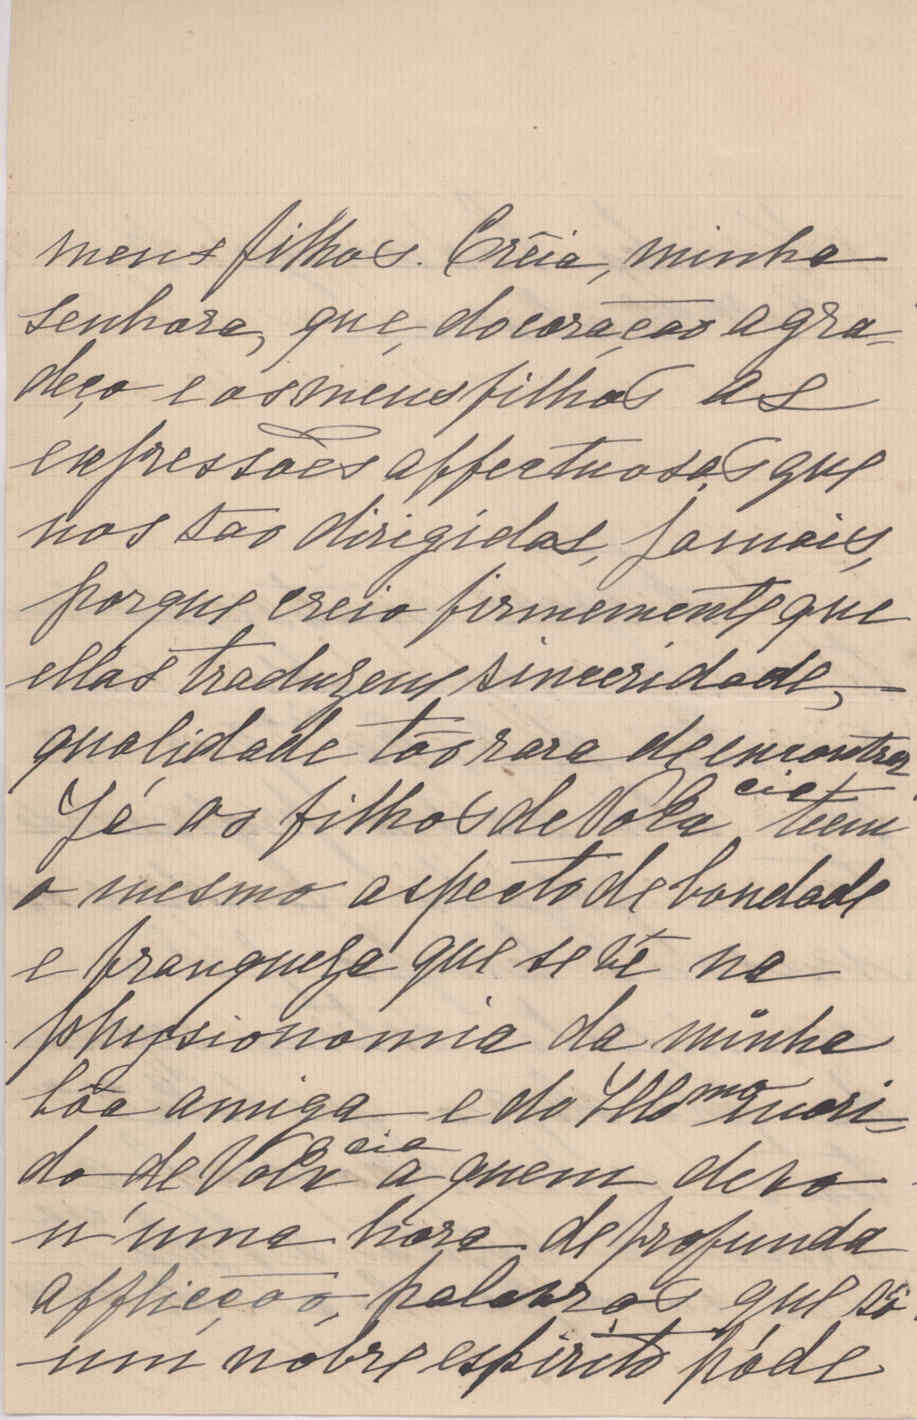 meus filhos. Crêia, minha
senhora, que, do coração agra=
deço e os meus filhos as
expressões affectuosas que
nos são dirigidas, jamais,
porque creio firmemente que
ellas traduzem sinceridade,
qualidade tão rara de encontrar
Já os filhos de V. Ex.cia teem
o mesmo aspecto de bondade
e franqueza que se vê na
physionomia da minha
bôa amiga e do Illo.mo mari=
do de V. Ex.cia a quem devo
n'uma hora de profunda
afflicção, palavras que só
um nobre espirito póde